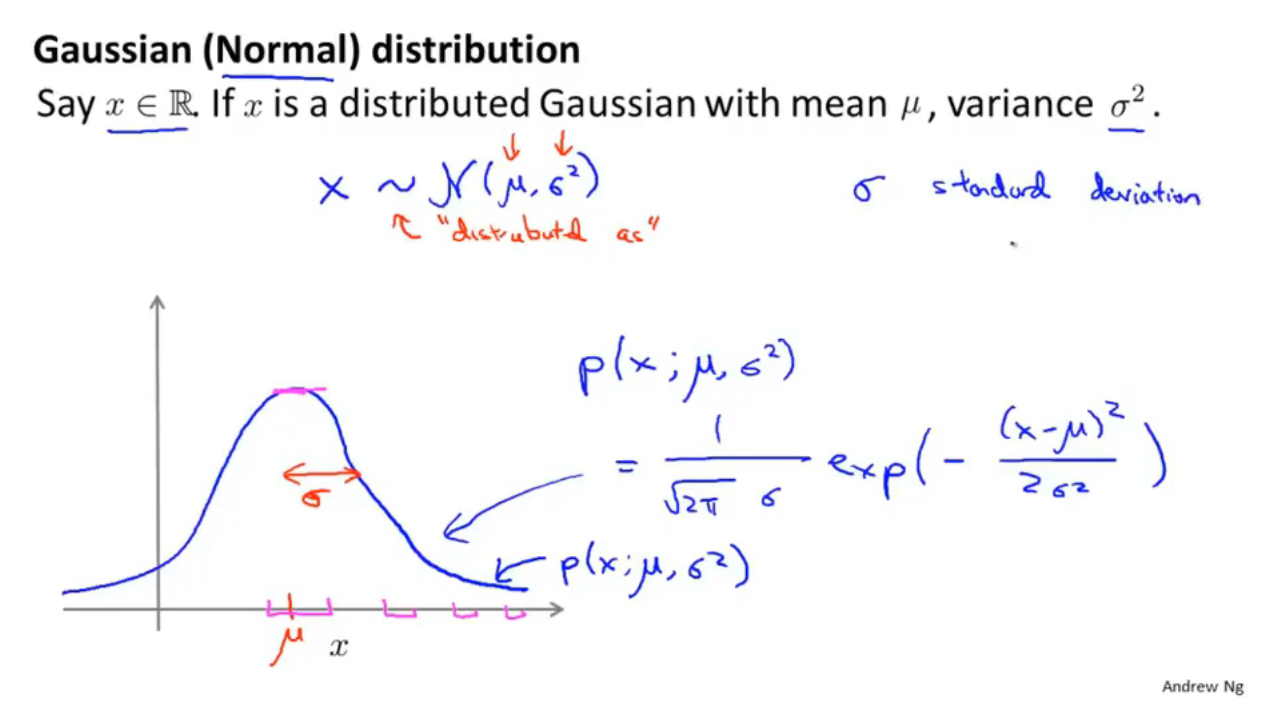 Gaussian (Normal) distribution
Say x ∈ ℝ. If x is a distributed Gaussian with mean μ, variance σ².
x ~ N(μ, σ²)
σ standard deviation
"distributd as"
p(x; μ, σ²)
= 1/(√2π σ) exp(- (x-μ)²/2σ²)
σ
p(x; μ, σ²)
μ
x
Andrew Ng